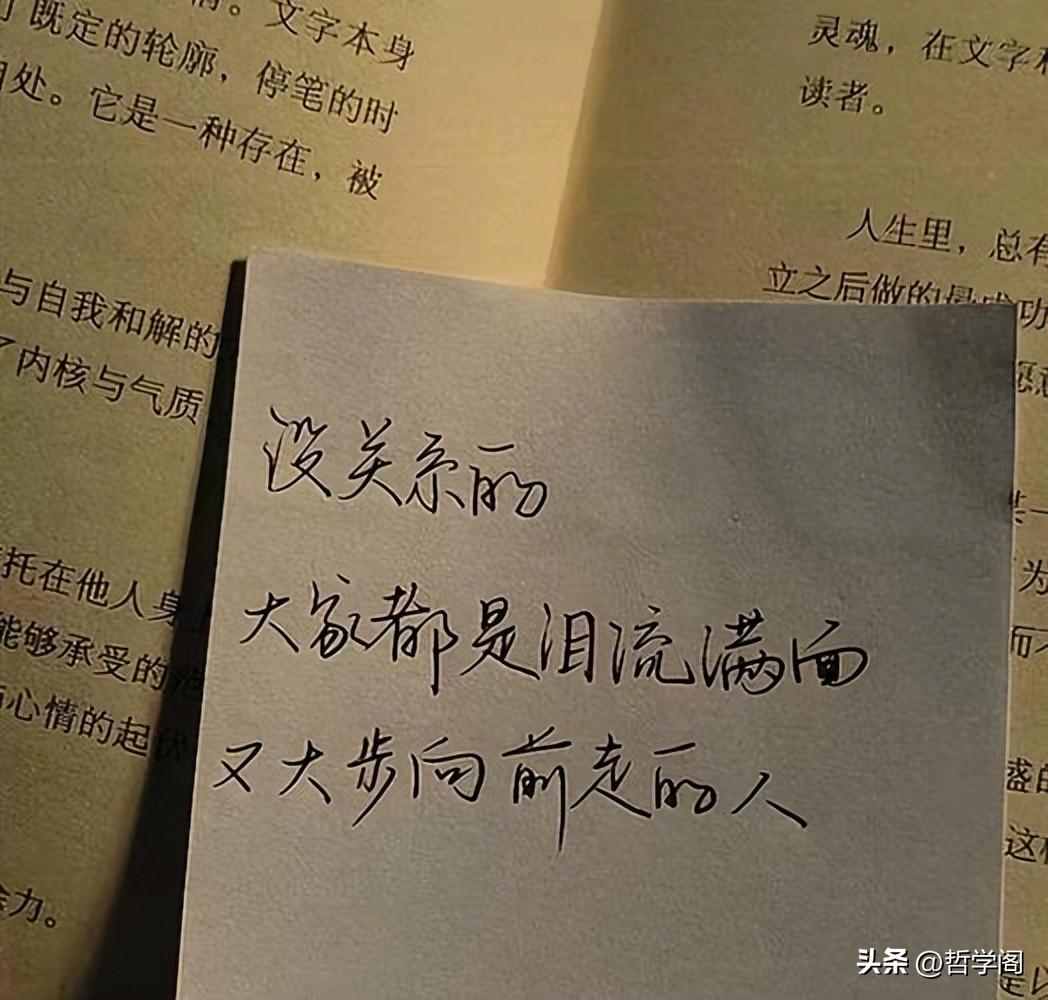 文字本身
既定的轮廓，停笔的时
处。它是一种存在，被
与自我和解的
了内核与气质
托在他人身
能够承受的
心情的起伏
力。
灵魂，在文字
读者。
人生里，总有
立之后做的最成功
愿意
某一
为
而不
盛的
这样
没关系的
大家都是泪流满面
又大步向前走的人
头条 @哲学阁